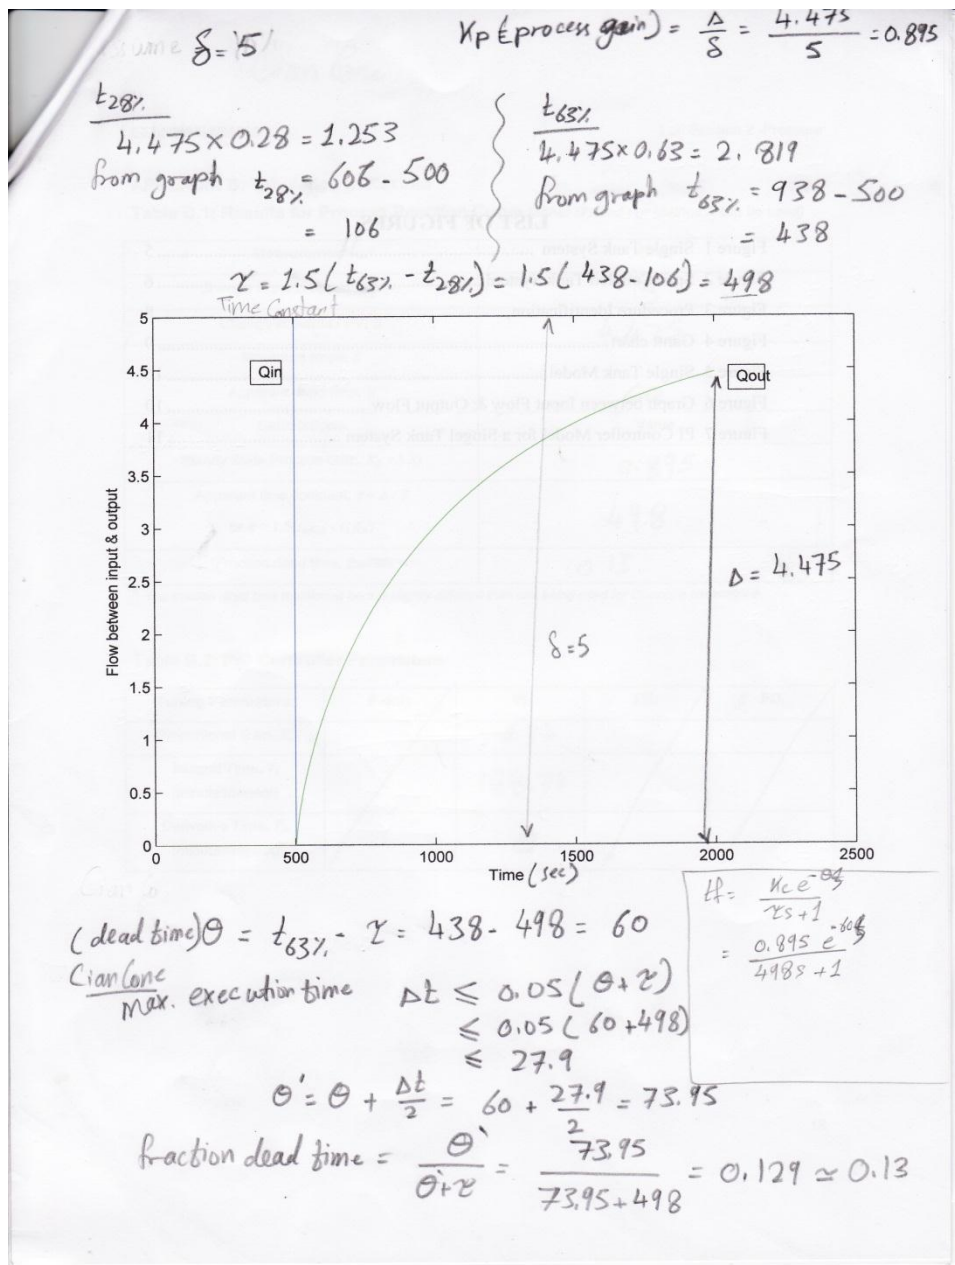 δ = 5
Kp (process gain) = Δ/δ = 4.475/5 = 0.895
t28%
4.475 × 0.28 = 1.253
from graph t28% = 606 - 500
= 106
t63%
4.475 × 0.63 = 2.819
from graph t63% = 938 - 500
= 438
τ = 1.5 ( t63% - t28% ) = 1.5 ( 438-106 ) = 498
Time Constant
5
4.5
4
3.5
3
2.5
2
1.5
1
0.5
0
Flow between input & output
Qin
Qout
Δ = 4.475
δ = 5
0 500 1000 1500 2000 2500
Time (sec)
(dead time) θ = t63% - τ = 438 - 498 = 60
tf = Kc e^-θs / τs + 1
= 0.895 e^-60s / 498s + 1
Ciancone
Max. execution time Δt ≤ 0.05 ( θ + τ )
≤ 0.05 ( 60 + 498)
≤ 27.9
θ' = θ + Δt/2 = 60 + 27.9/2 = 73.95
fraction dead time = θ'/θ'+τ = 73.95/73.95+498 = 0.129 ≃ 0.13